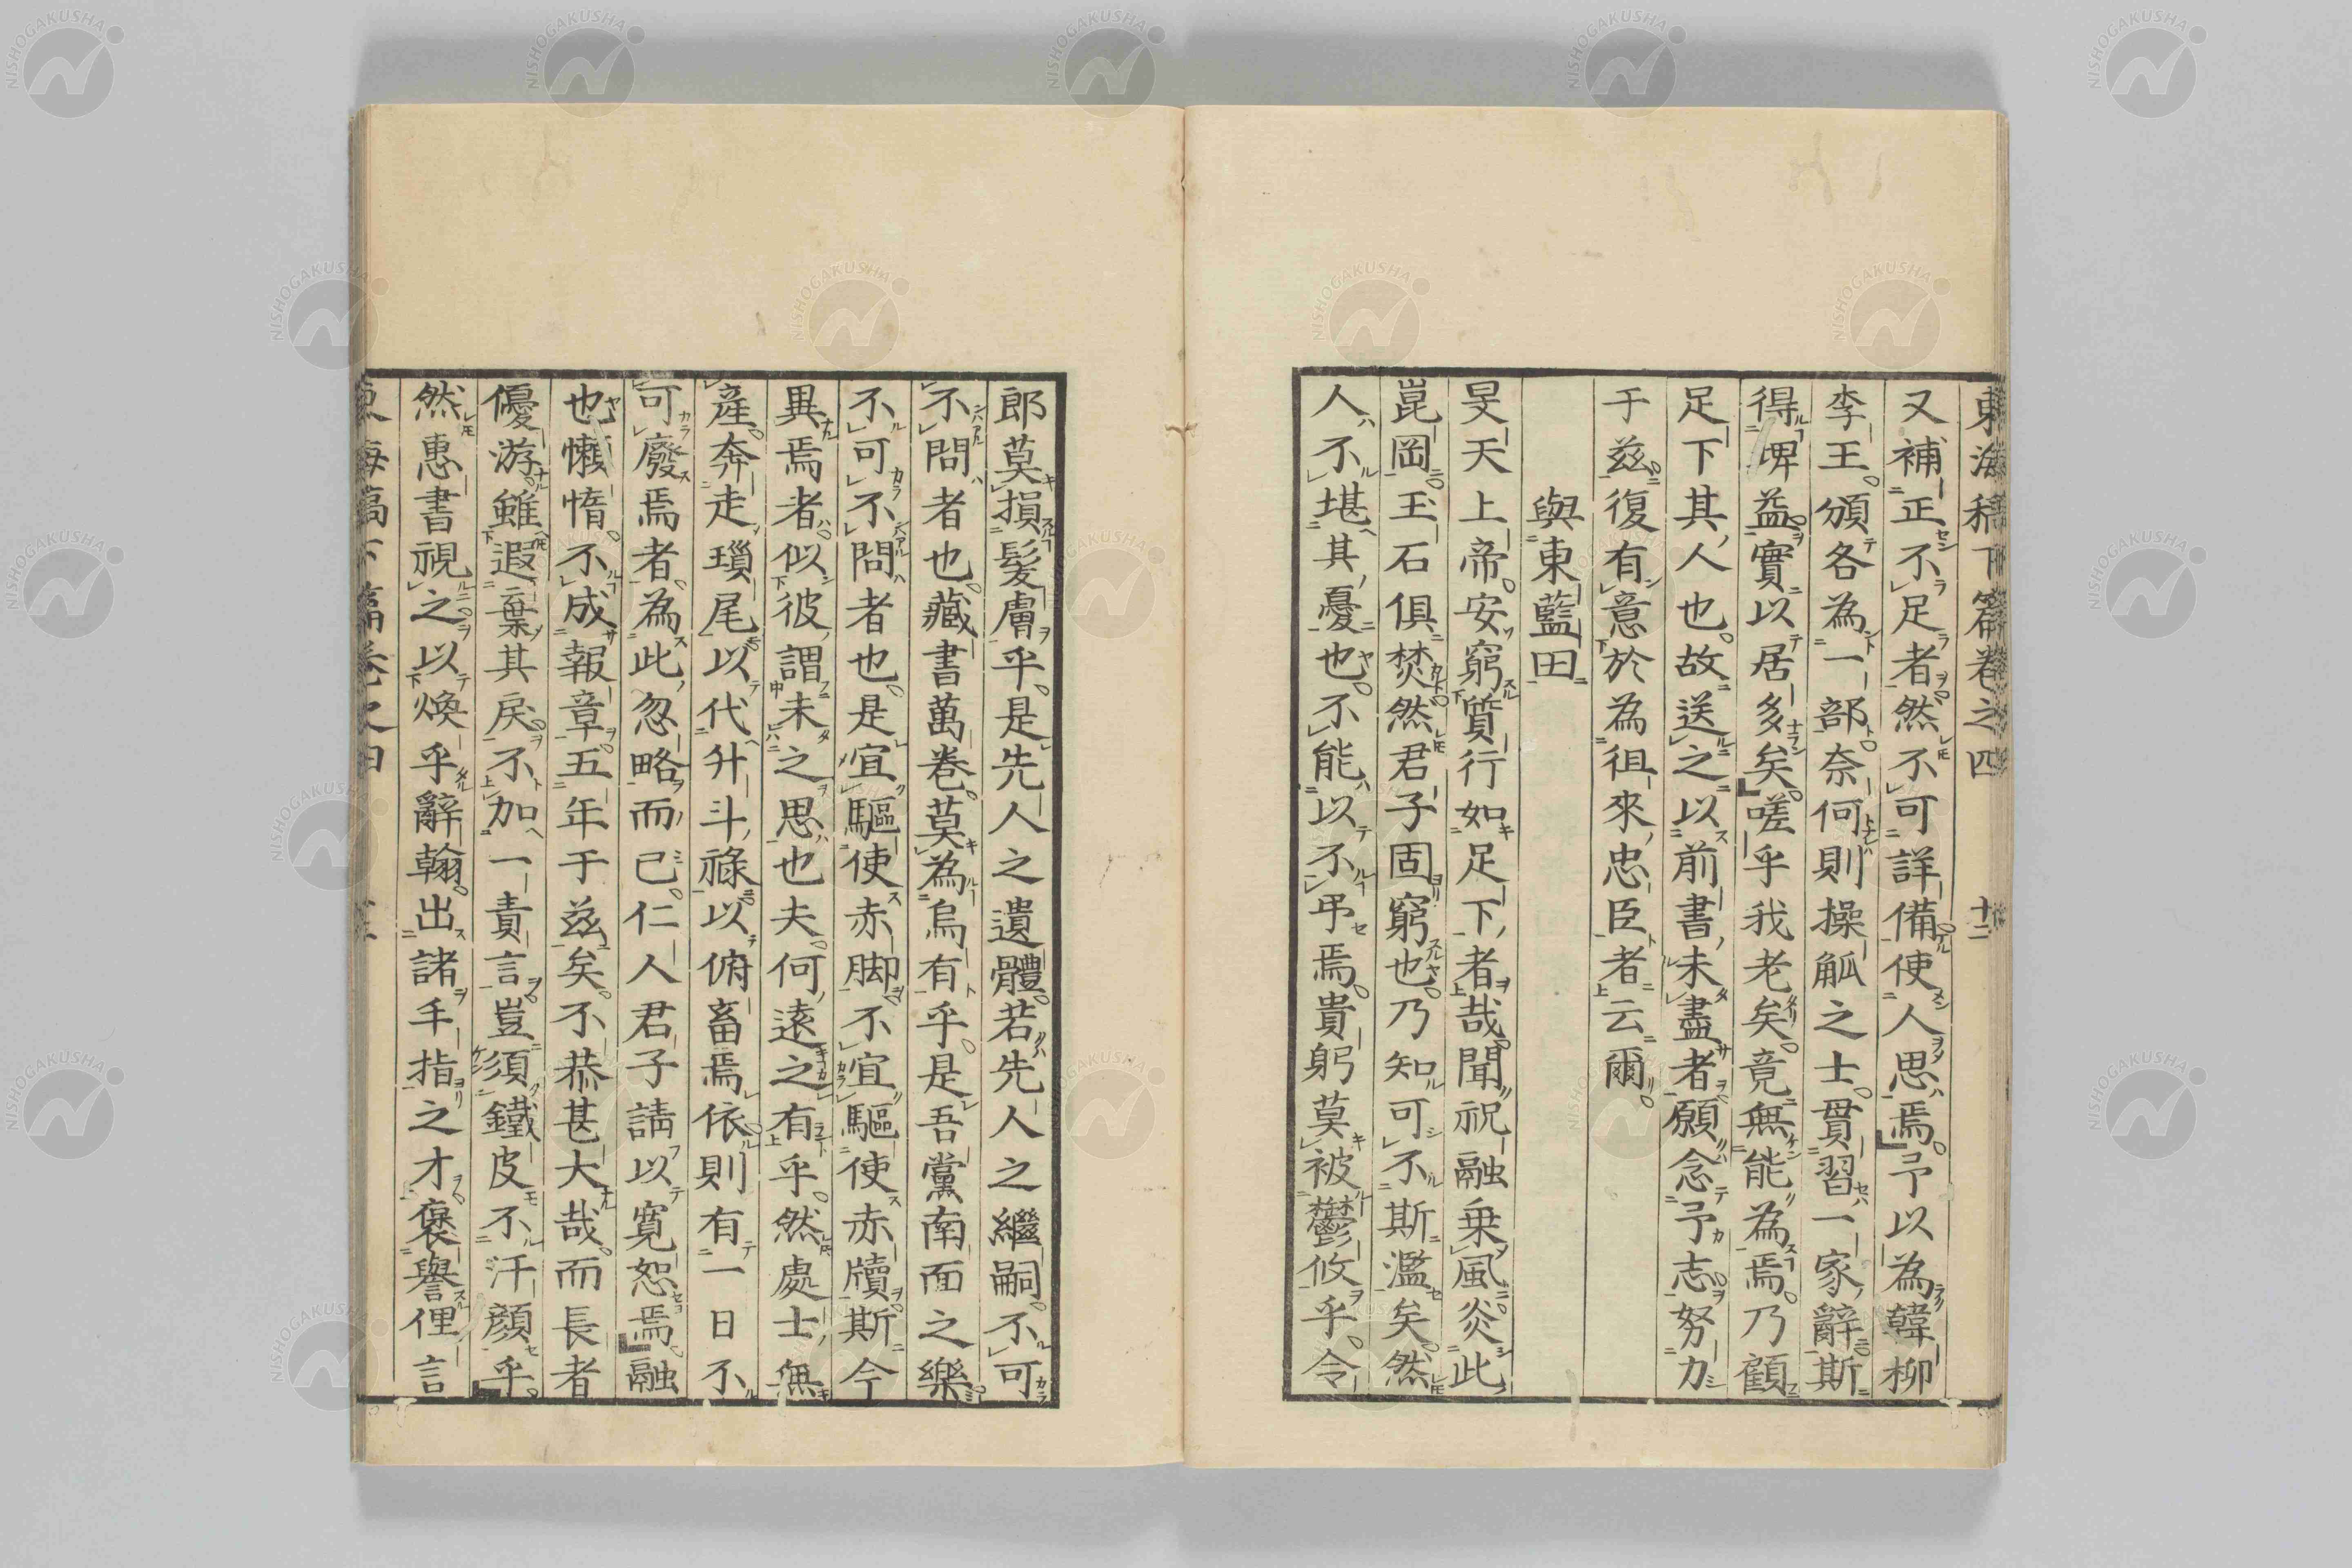 東海稿下篇卷之四 十二
又補正不足者然不可詳備使人思焉予以為韓柳
李王頒各為一部奈何則操觚之士貫習一家辭斯
得埤益實以居多矣嗟乎我老矣竟無能為焉乃顧
足下其人也故送之以前書未盡者願念予志努力
于茲復有意於為徂來忠臣者云爾
與東藍田
旻天上帝安窮質行如足下者哉聞祝融乗風炎此
崑岡玉石俱焚然君子固窮也乃知可不斯濫矣然
人不堪其憂也不能以不弔焉貴躬莫被鬱攸乎令
郎莫損髮膚乎是先人之遺體若先人之繼嗣不可
不問者也藏書萬卷莫為烏有乎是吾黨南面之樂
不可不問者也是宜驅使赤脚不宜驅使赤牘斯今
異焉者似彼謂未之思也夫何遠之有乎然處士無
產奔走瑣尾以代升斗祿以俯畜焉依則有一日不
可廢焉者為此忽略而已仁人君子請以寬恕焉融
也懶惰不成報章五年于茲矣不恭甚大哉而長者
優游雖遐棄其戾不加一責言豈須鐵皮不汗顏乎
然惠書視之以煥乎辭翰出諸手指之才褒譽俚言
東海稿下篇卷之四